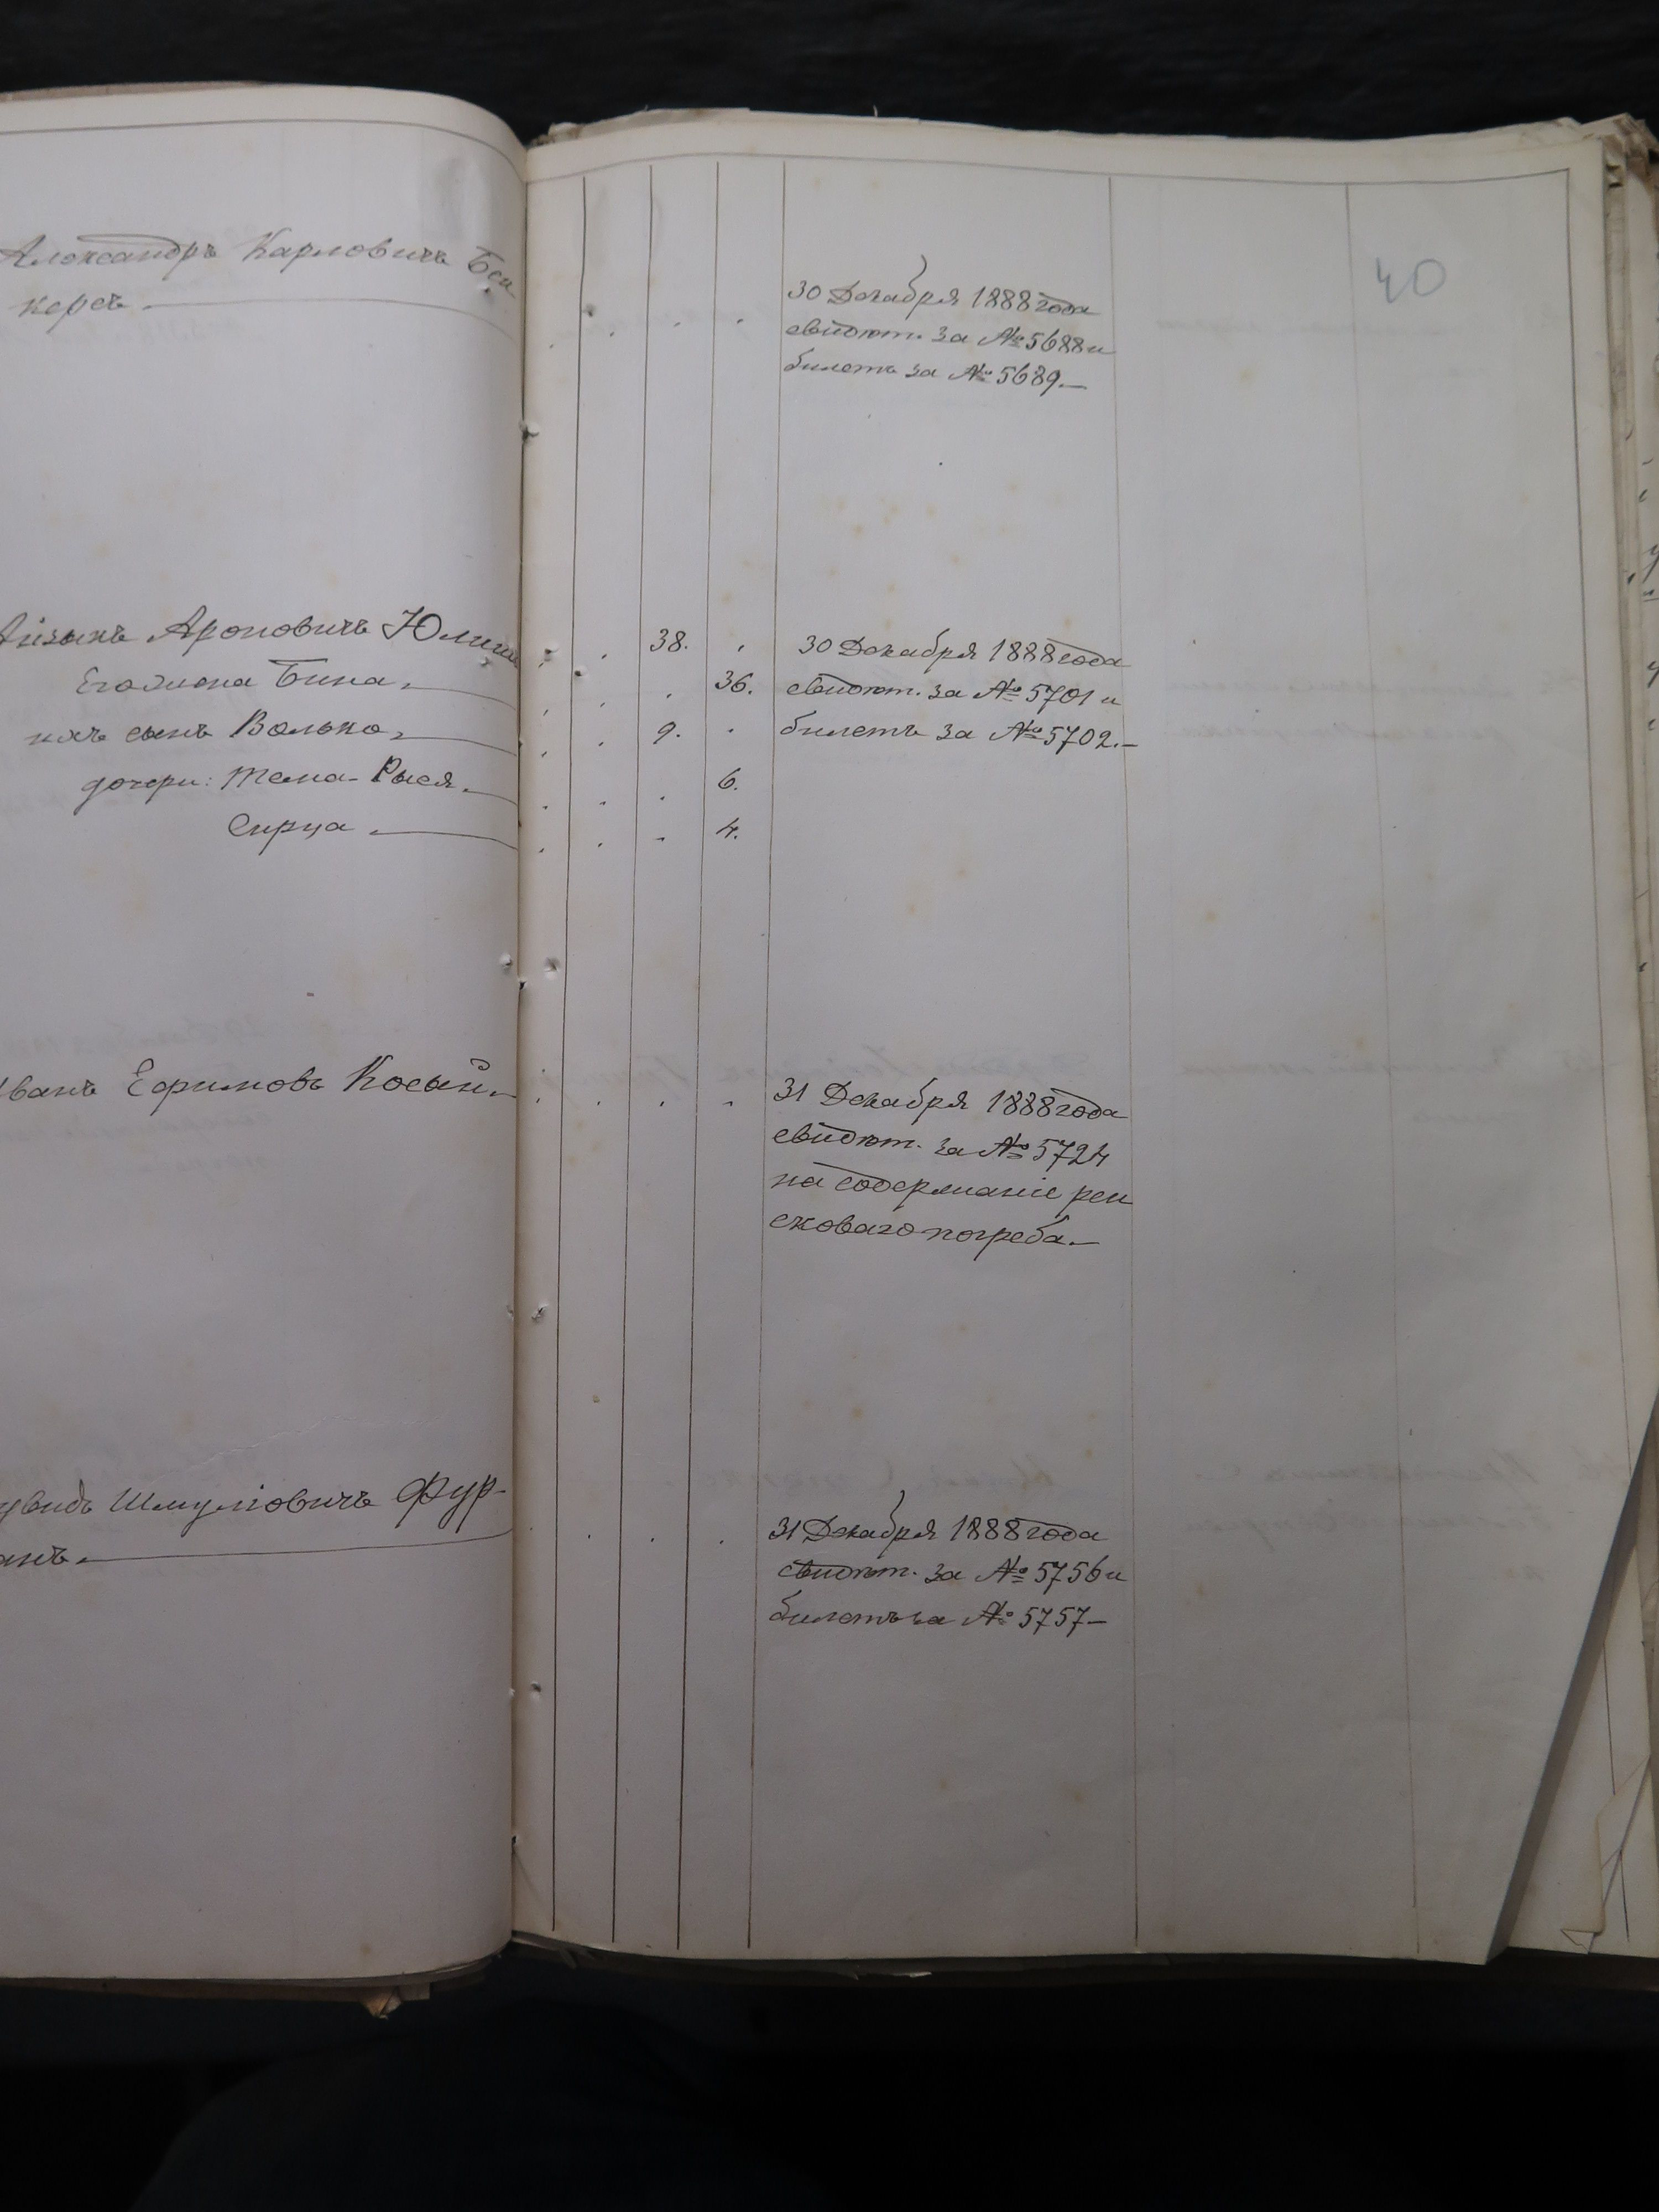 40
Александръ Карловичъ Бек
керсъ
30 Декабря 1888 года
свидѣт. за № 5688 и
билетъ за № 5689.—
Айзикъ Ароновичъ
38.
30 Декабря 1888 года
Его жена Бина.
36.
свидѣт. за № 5701 и
ихъ сынъ Волько.
9.
билетъ за № 5702.—
дочери: Тема-Рыся.
6.
Сирца
4.
Иванъ Ефимовъ Косый.
31 Декабря 1888 года
свидѣт. за № 5724
на содержаніе рен
сковаго погреба.—
Шмуліовичъ Фур-
анъ.
31 Декабря 1888 года
свидѣт. за № 5756 и
билетъ за № 5757—